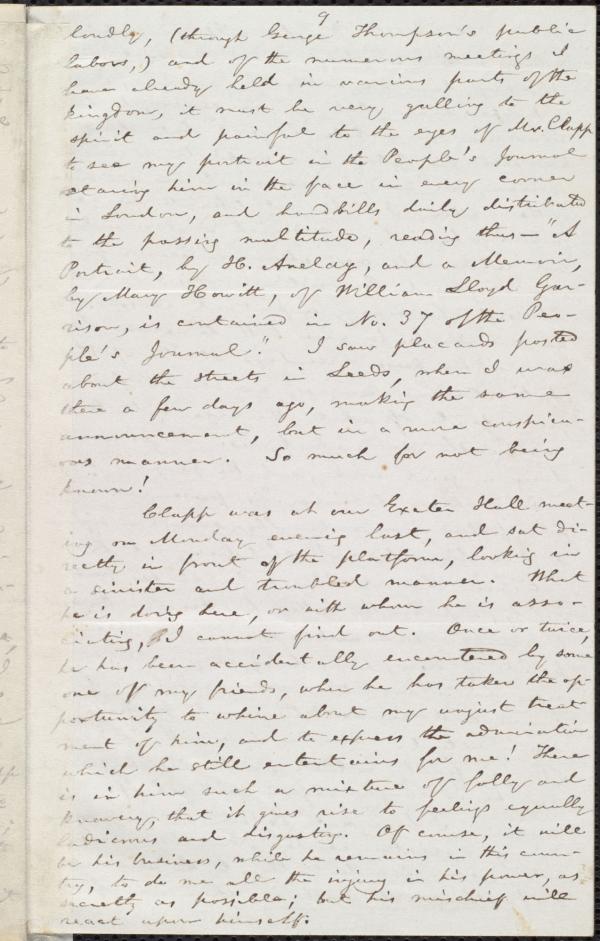 9
loudly, (through George Thompson's public
labors,) and of the numerous meetings I
have already held in various parts of the
kingdom, it must be very galling to the
spirit and painful to the eyes of Mr. Clapp
to see my portrait in the People's Journal
staring him in the face in every corner
in London, and handbills daily distributed
to the passing multitude, reading thus—"A
Portrait, by H. Anelay, and a Memoir,
by Mary Howitt, of William Lloyd Gar-
rison, is contained in No. 37 of the Peo-
ple's Journal." I saw placards posted
about the streets in Leeds, when I was
there a few days ago, making the same
announcement, but in a more conspicu-
ous manner. So much for not being
known!
Clapp was at our Exeter Hall meet-
ing on Monday evening last, and sat di-
rectly in front of the platform, looking in
a sinister and troubled manner. What
he is doing here, or with whom he is asso-
ciating, I cannot find out. Once or twice,
he has been accidentally encountered by some
one of my friends, when he has taken the op-
portunity to whine about my unjust treat-
ment of him, and to express the admiration
which he still entertains for me! There
is in him such a mixture of folly and
knavery, that it gives rise to feelings equally
ludicrous and disgusting. Of course, it will
be his business, while he remains in this coun-
try, to do me all the injury in his power, as
secretly as possible; but his mischief will
react upon himself.